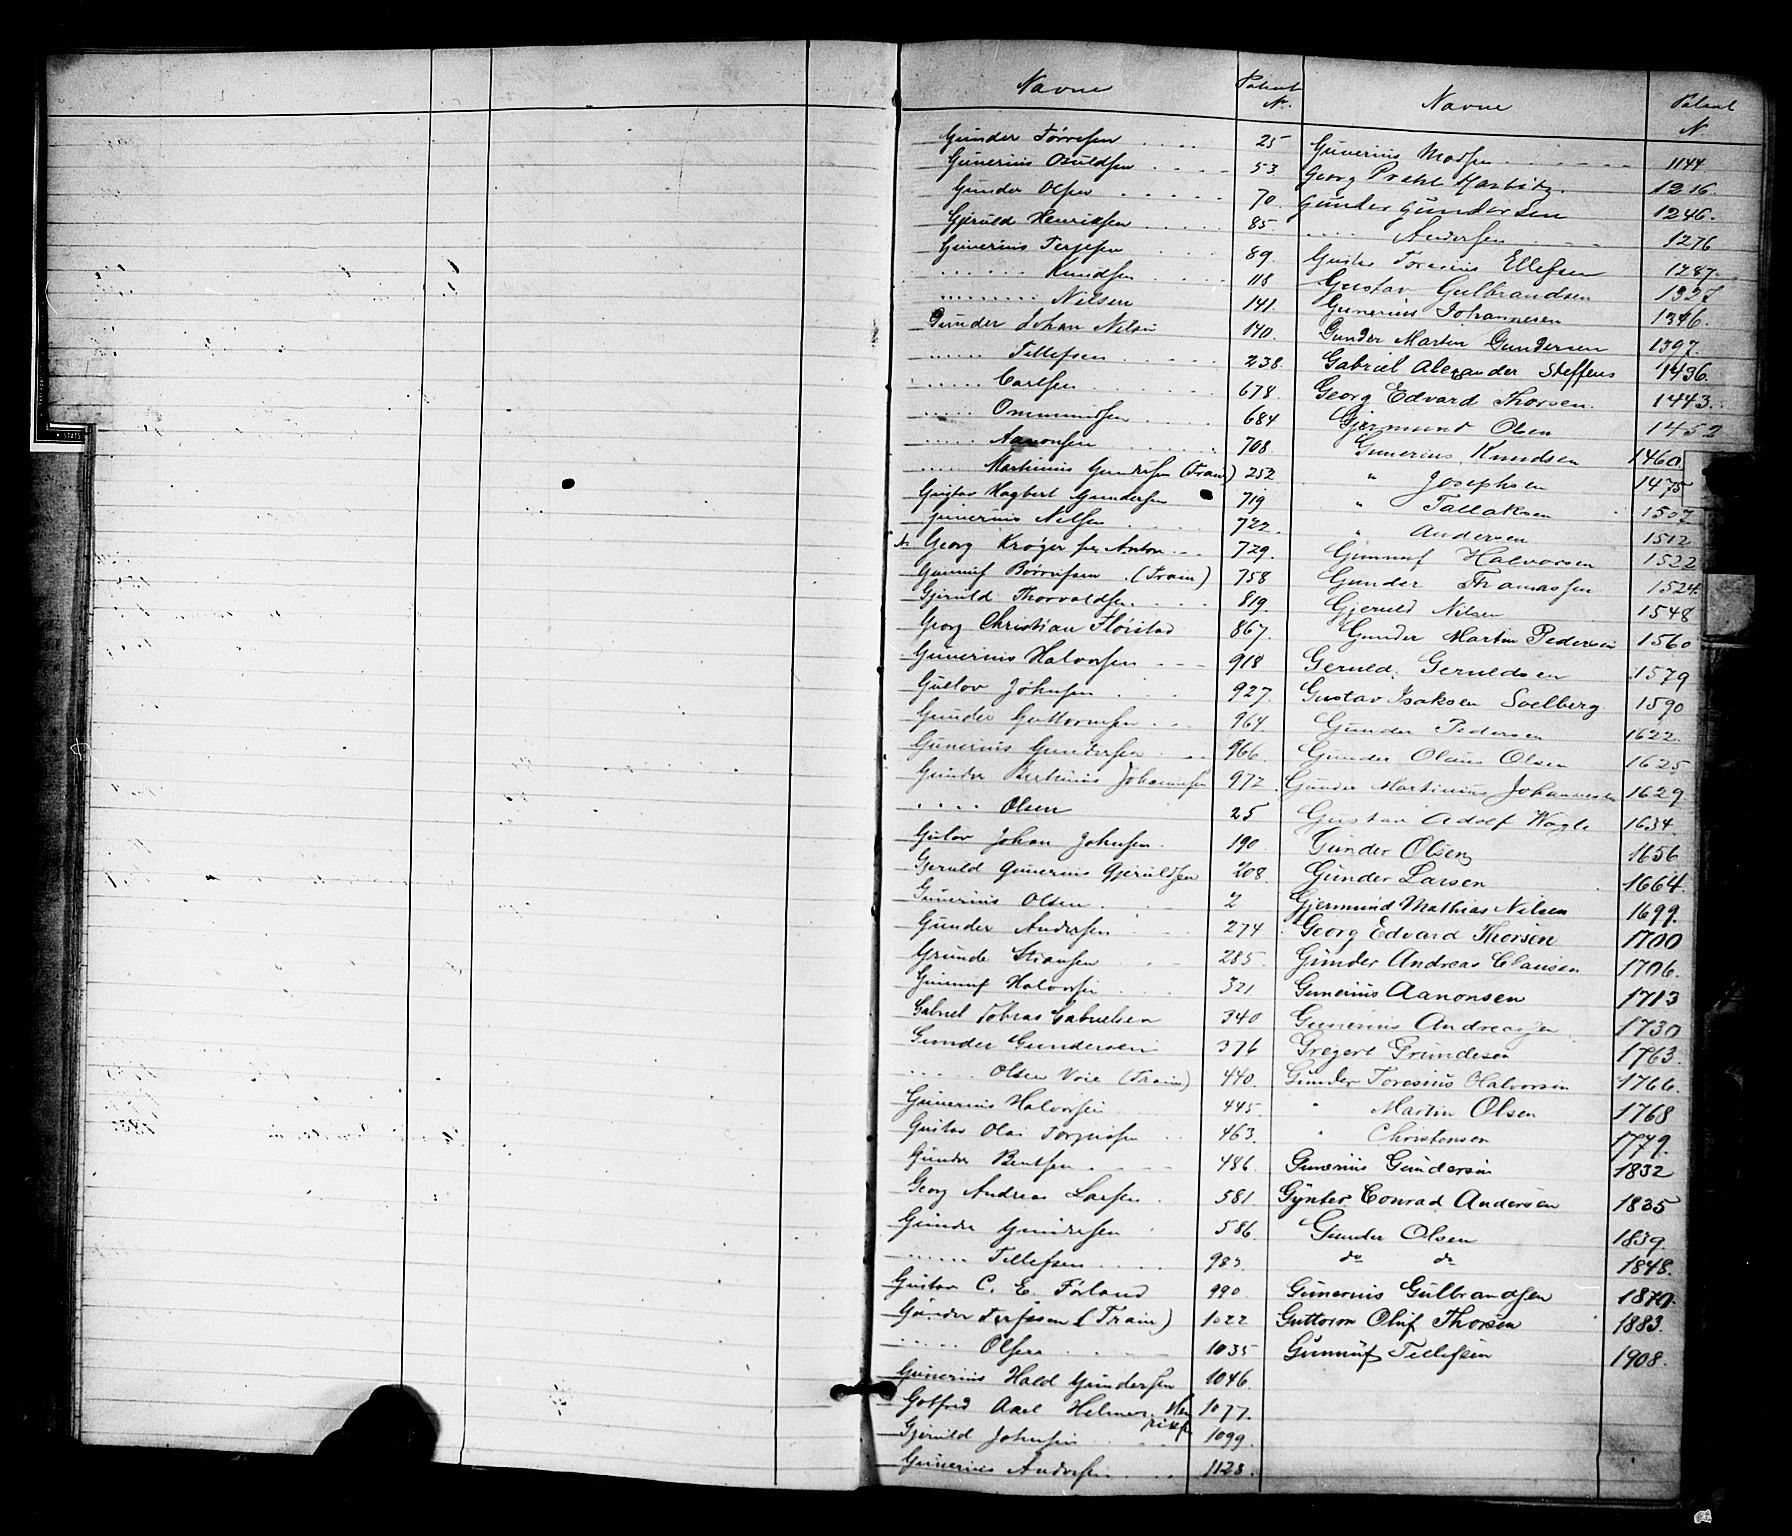 Navne
Patent
N.
Gunder Tørresen 25
Gunerius Osuldsen 53
Gunder Olsen 70
Gjeruld Henriksen 85
Gunerius Terjesen 89.
..... Knudsen 118
........ Nilsen 141.
Gunder Johan Nilsen 140.
..... Tellefsen 238.
..... Carlsen 678
..... Ommundsen 684
..... Aanonsen 708
..... Martinius Gundersen (Train) 252
Gustav Hagbert Gundersen 719
Gunerius Nilsen 722
Georg Krøger 729.
Gunnuf Børresen (Train) 758
Gjeruld Thorvaldsen 819
Georg Christian Fløistad 867.
Gunerius Halvorsen 918
Gullov Johnsen 927.
Gunder Guttormsen 964.
Gunerius Gundersen 966.
Gunder Berthinis Johannesen 972
.... Olsen 25
Gulov Johan Johnsen 190
Gjeruld Gunerius Gjeruldsen 208.
Gunerius Olsen 2
Gunder Andersen 274
Grunde Steansen 285.
Gunnuf Halvorsen 321
Gabriel Tobias Gabrielsen 340
Gunder Gundersen 376
.... Olsen Voie (Train) 440.
Gunerius Halvorsen 445.
Gustav Olai Torjusen 463.
Gunder Bentsen 486.
Georg Andreas Larsen 581
Gunder Gundersen 586.
..... Tellefsen 983.
Gustav C. E. Førland 990.
Gunder Terjesen (Train) 1022
..... Olsen 1035
Gunerius Hald Gundersen 1046.
Gotfred Axel Helmer Henriksen 1077.
Gjeruld Johnsen 1099.
Gunerius Andersen 1128.
Navne
Patent
N
Gunerius Madsen 1144
Georg Prahl Harbitz. 1216.
Gunder Gundersen 1246.
.... Andersen 1276
Gustav Toresius Ellefsen 1287.
Gustav Gulbrandsen 1327
Gunerius Johannesen 1346.
Gunder Martin Gundersen 1397.
Gabriel Alexander Steffens 1436.
Georg Edvard Thorsen. 1443.
Gjermund Olsen 1452
Gunerius Knudsen 1460.
" Josephsen 1475
" Tallaksen 1507.
" Andersen 1512
Gunnuf Halvorsen 1522
Gunder Thomassen 1524.
Gjeruld Nilsen 1548
Gunder Martin Pedersen 1560
Geruld Geruldsen 1579
Gustav Isaksen Solberg 1590
Gunder Pedersen 1622.
Gunder Olaus Olsen 1625
Gunder Martinius Johannesen 1629.
Gustav Adolf Wogle 1634.
Gunder Olsen 1656
Gunder Larsen 1664.
Gjermund Mathias Nilsen 1699.
Georg Edvard Thorsen 1700
Gunder Andreas Clausen 1706.
Gunerius Aanonsen 1713
Gunerius Andreassen 1730
Gregert Grundesen 1763.
Gunder Toresius Halvorsen 1766.
" Martin Olsen 1768
" Christensen 1779.
Gunerius Gundersen 1832
Gynter Conrad Andersen 1835
Gunder Olsen 1839.
do do 1848.
Gunerius Gulbrandsen 1870.
Guttorm Oluf Thorsen 1883.
Gunnuf Tellefsen 1908.